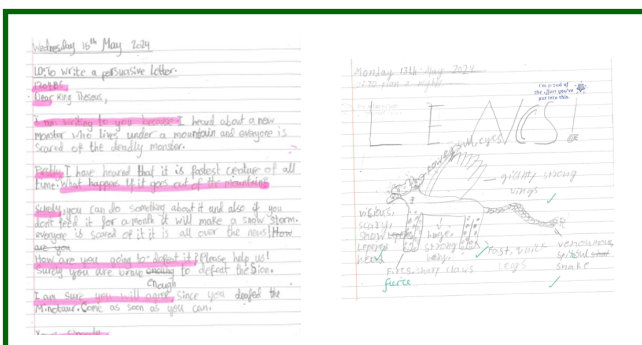 Wednesday 15th May 2024
LO: To write a persuasive letter.
Dear King Theseus,
I am writing to you because I heard about a new
monster who lives under a mountain and everyone is
scared of the deadly monster.
Firstly I have heared that it is fastest creature of all
time. What happens if it goes out of the mountains
Surely, you can do something about it and also if you
dont feed it for a meals it will make a snow storm.
everyone is scared of it it is all over the news! How
are you
How are you going to defeat it? Please help us!
Surely you are brave enough to defeat the
I am sure you will agree since you defeted the
Minotaur. Come as soon as you can.
Monday 13th May 2024
I'm proud of
the effort you've
put into this.
powerful eyes
giant, strong
wings
vicious,
scary,
snow
leperds
head
huge,
strong
body
Fast, quick
legs
venomous
snake
Fires, sharp claws
fierce